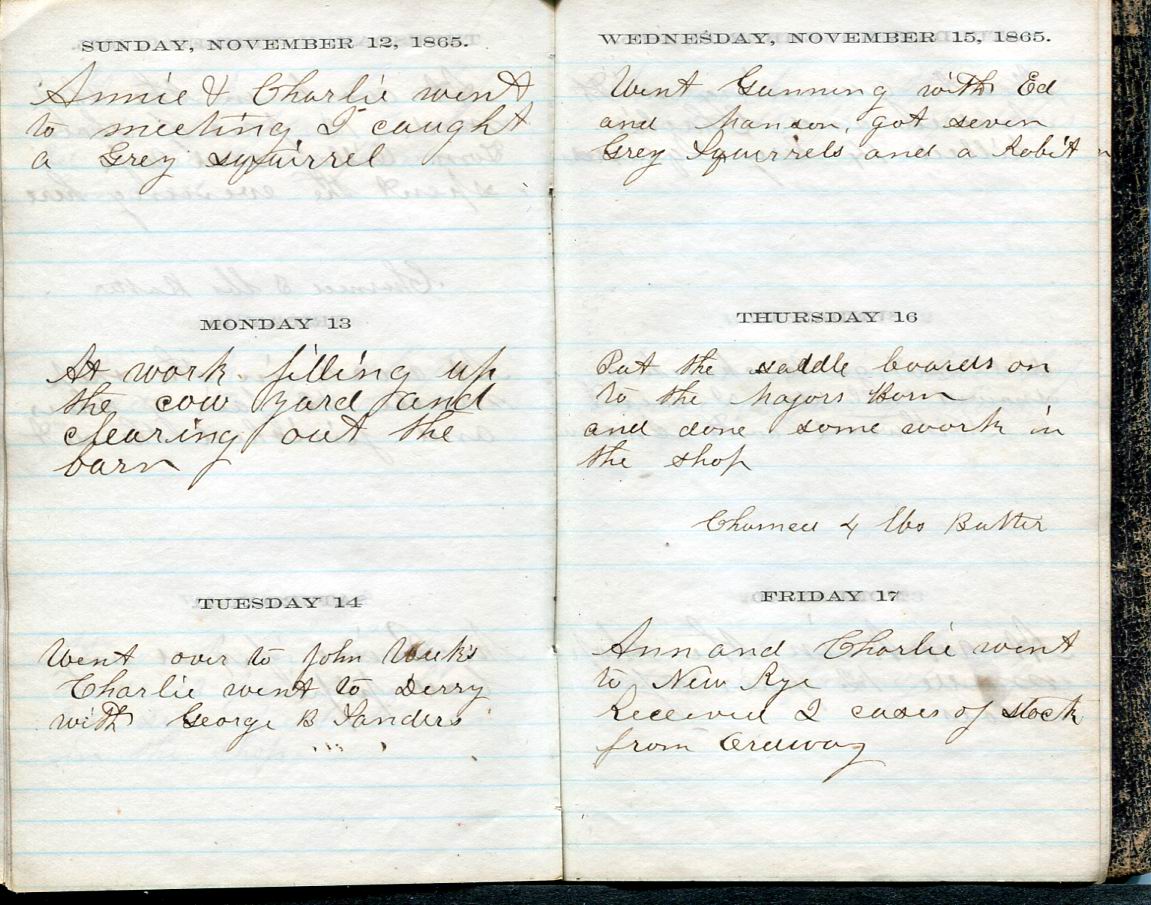 SUNDAY, NOVEMBER 12, 1865.
Annie & Charlie went
to meeting, I caught
a Grey squirrel
MONDAY 13
At work filling up
the cow yard and
clearing out the
barn
TUESDAY 14
Went over to John
Charlie went to Derry
with George B Sanders
WEDNESDAY, NOVEMBER 15, 1865.
Went Gunning with Ed
and Manson, got seven
Grey Squirrels and a Rabit
THURSDAY 16
Put the saddle boards on
to the Majors Barn
and done some work in
the shop
& lbs Butter
FRIDAY 17
Ann and Charlie went
to New Rye
Received 2 cases of stock
from Ordway